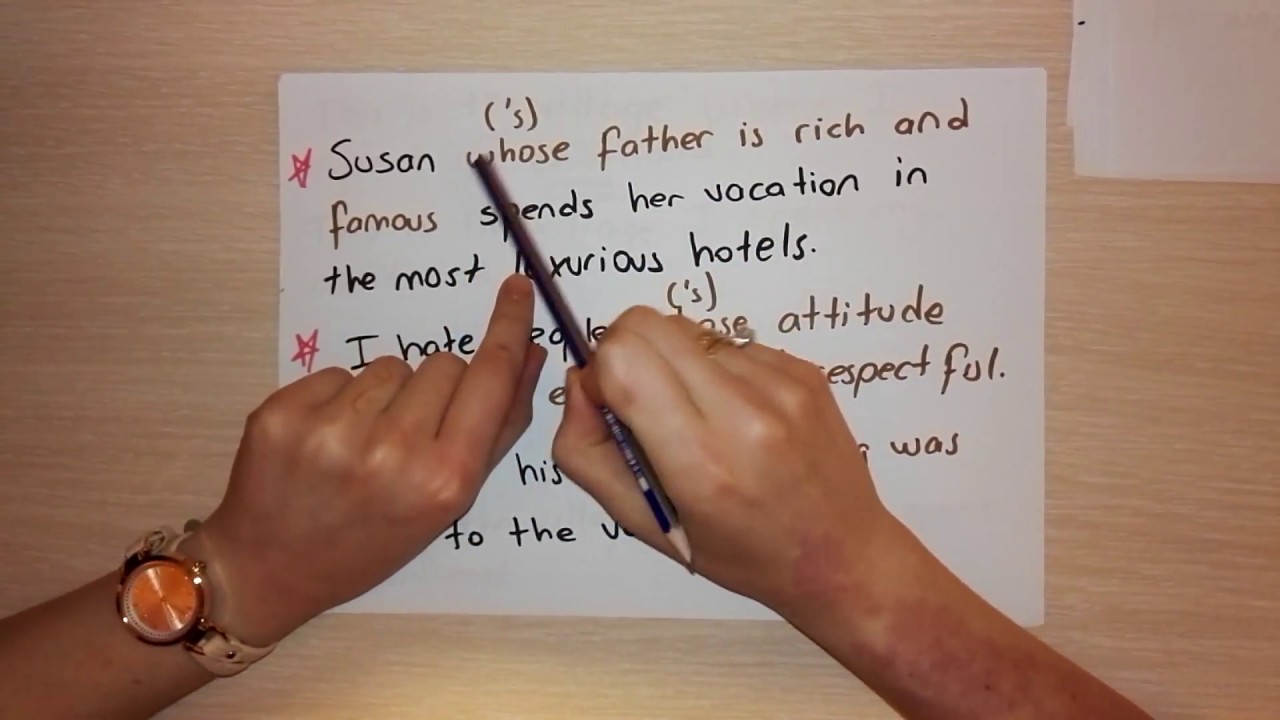 ('s)
Susan whose father is rich and
famous spends her vocation in
the most luxurious hotels.
('s)
I hate people attitude
respectful.
was
his
to the